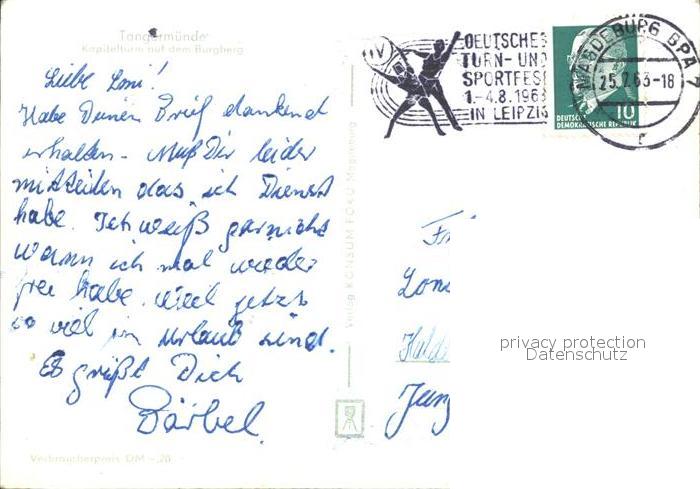 Tangermünde
Kapitelturm auf dem Burgberg
Liebe Loni!
Habe Deinen Brief dankend
erhalten. Muß Dir leider
mitteilen das ich Dienst
habe. Ich weiß garnicht
wann ich mal wieder
frei habe. weil jetzt
so viel im Urlaub sind.
Es grüßt Dich
Bärbel.
Verbraucherpreis DM -,20
Verlag KONSUM FOKO Magdeburg
DEUTSCHES
TURN- UND
SPORTFEST
1.-4.8.1963
IN LEIPZIG
DEUTSCHE
DEMOKRATISCHE REPUBLIK
10
MAGDEBURG BPA 7
25.7.63-18
r
Fr
Lon
Halde
Jung
privacy protection
Datenschutz